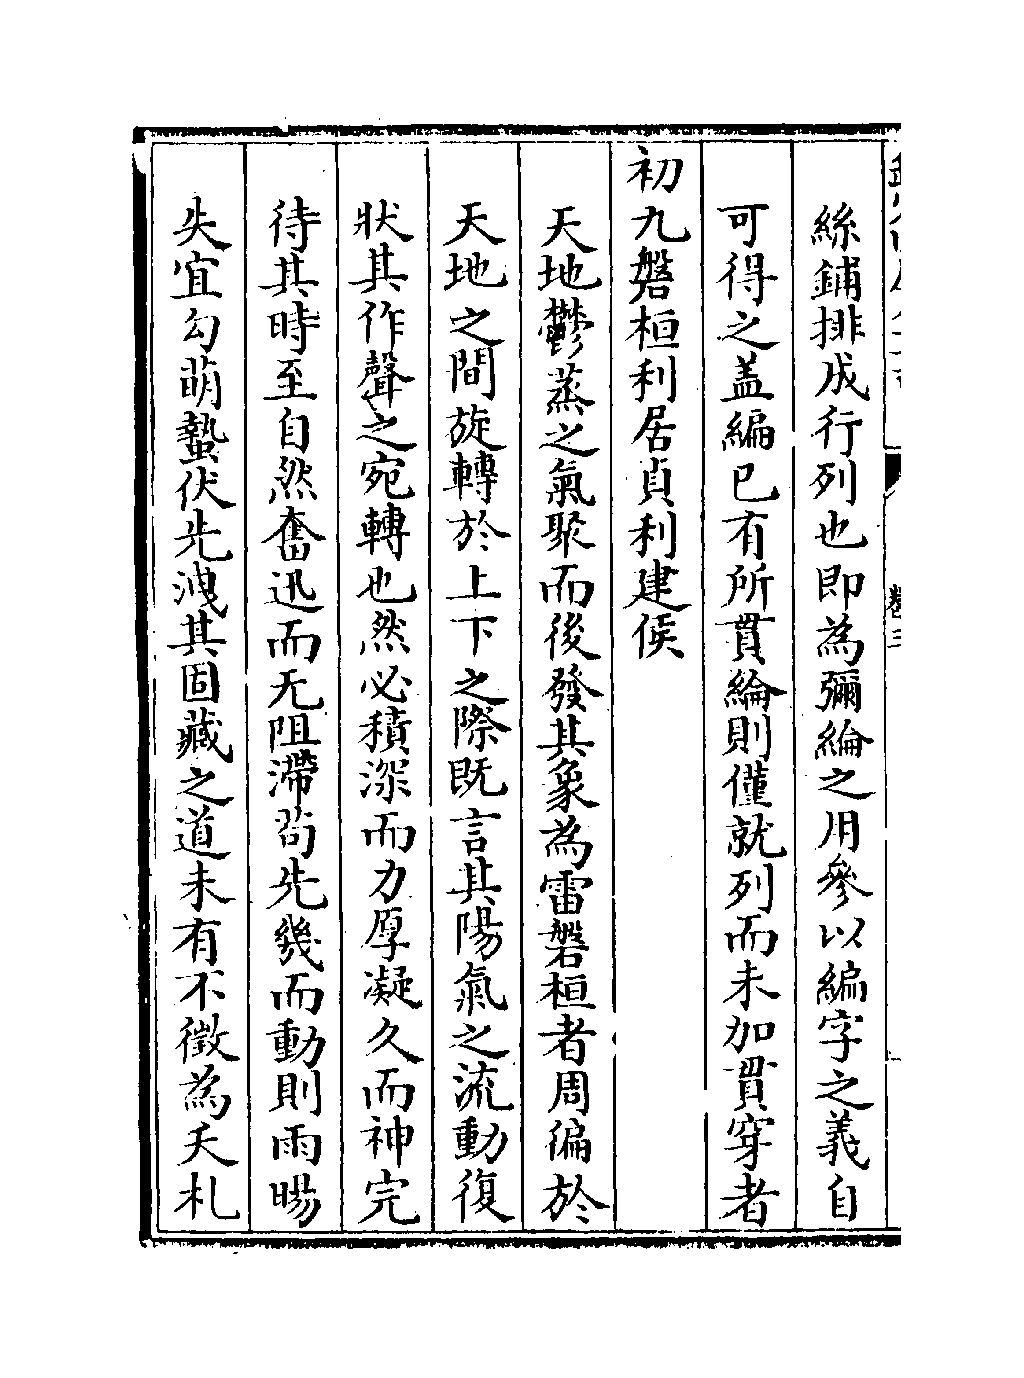 絲鋪排成行列也即為彌綸之用參以編字之義自
可得之盖編已有所貫綸則僅就列而未加貫穿者
初九磐桓利居貞利建侯
天地鬱蒸之氣聚而後發其象為雷磐桓者周徧於
天地之間旋轉於上下之際既言其陽氣之流動復
狀其作聲之宛轉也然必積深而力厚凝久而神完
待其時至自然奮迅而无阻滯茍先幾而動則雨暘
失宜勾萌蟄伏先洩其固藏之道未有不徵為夭札